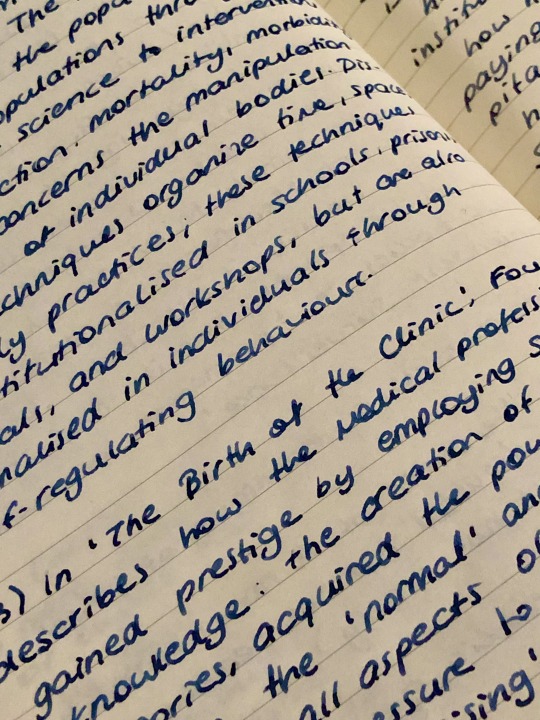 The
the popu
opulations thro
science to intervention
ction, mortality, morbid
concerns the manipulation
of individual bodies. Dis
chniques organize time, space
ly practices; these techniques
titutionalised in schools, prison
als, and workshops, but are also
nalised in individuals through
f-regulating behaviour.
3) In 'The Birth of the Clinic', Fou
describes how the Medical profess
gained prestige by employing s
knowledge: the creation of
ories, acquired the pow
the 'normal' an
all aspects o
essure to
ising'
institu
how
paying
pita